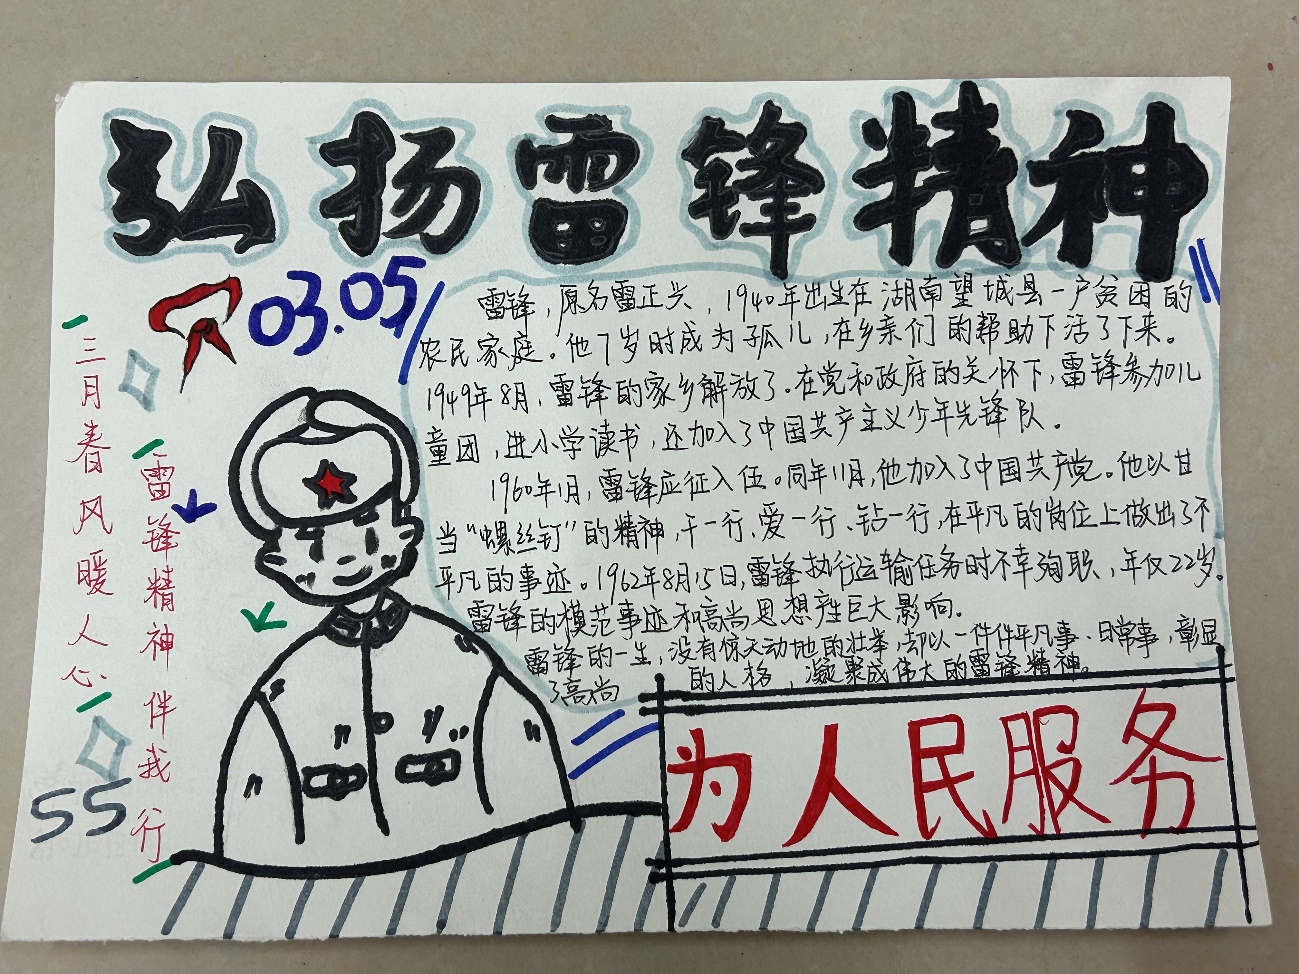 弘扬雷锋精神
03.05
三月春风暖人心
雷锋精神伴我行
雷锋，原名雷正兴，1940年出生在湖南望城县一户贫困的
农民家庭。他7岁时成为孤儿，在乡亲们的帮助下活了下来。
1949年8月，雷锋的家乡解放了。在党和政府的关怀下，雷锋参加儿
童团，进小学读书，还加入了中国共产主义少年先锋队。
1960年1月，雷锋应征入伍。同年11月，他加入了中国共产党。他以甘
当“螺丝钉”的精神，干一行、爱一行、钻一行，在平凡的岗位上做出了不
平凡的事迹。1962年8月15日，雷锋执行运输任务时不幸殉职，年仅22岁。
雷锋的模范事迹和高尚思想产生巨大影响。
雷锋的一生，没有惊天动地的壮举，却以一件件平凡事、日常事，彰显
了高尚的人格，凝聚成伟大的雷锋精神。
为人民服务
55